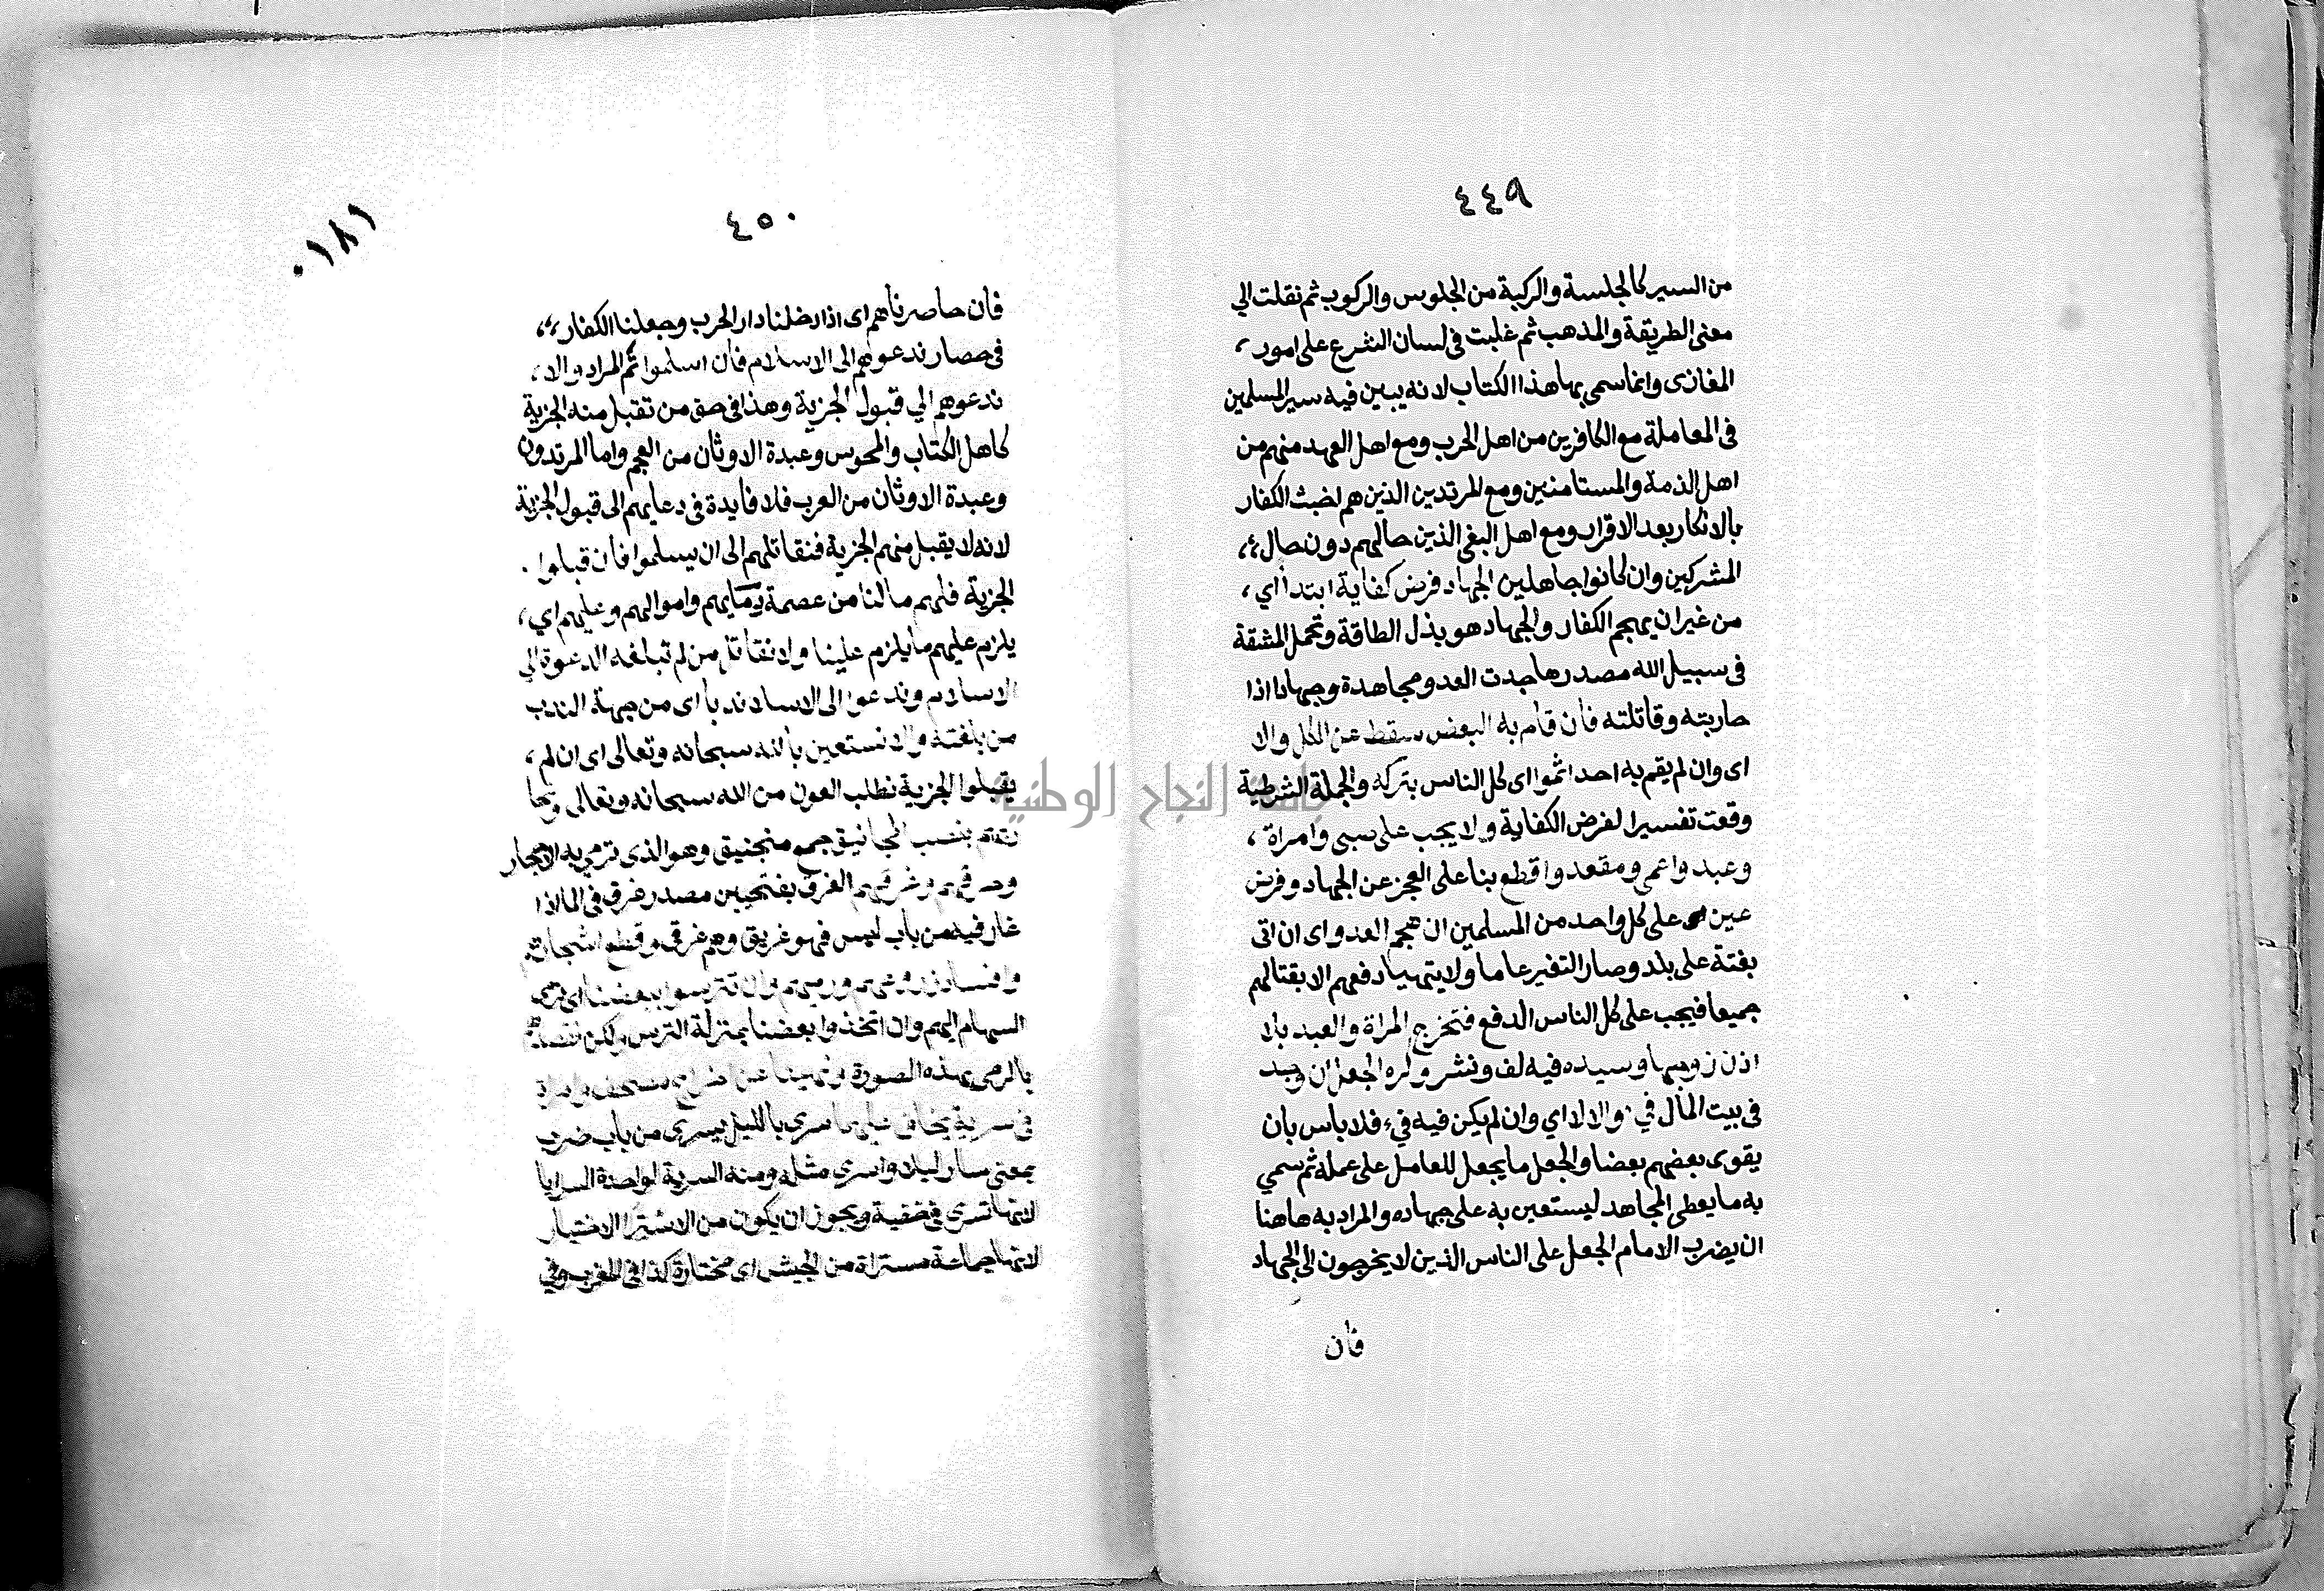 ٤٤٩
من السير كالجلسة والركبة من الجلوس والركوب ثم نقلت الي
معنى الطريقة والمذهب ثم غلبت فى لسان الشرع على امور
المغازى وانما سمى بها هذا الكتاب لانه يبين فيه سير المسلمين
فى المعاملة مع الكافرين من اهل الحرب ومع اهل العهد منهم من
اهل الذمة والمستامنين ومع المرتدين الذين هم اخبث الكفار
بالانكار بعد الاقرار ومع اهل البغى الذين حالهم دون حال
المشركين وان كانوا جاهلين الجهاد فرض كفاية ابتدأ اي
من غير ان يهجم الكفار والجهاد هو بذل الطاقة وتحمل المشقة
فى سبيل الله مصدر جاهدت العدو مجاهدة وجهادا اذا
حاربته وقاتلته فان قام به البعض سقط عن الكل والا
اى وان لم يقم به احد اثموا اى كل الناس بتركه والجملة الشرطية
وقعت تفسيرا لفرض الكفاية ولا يجب على صبى وامراة
وعبد واعمى ومقعد واقطع بنا على العجز عن الجهاد وفرض
عين على كل واحد من المسلمين ان هجم العدو اى ان اتى
بغتة على بلد وصار النفير عاما ولا يتهيا دفعهم الا بقتالهم
جميعا فيجب على كل الناس الدفع فتخرج المراة والعبد بلا
اذن زوجها وسيده فيه لف ونشر وكره الجعل ان وجد
فى بيت المال في والا لا اي وان لم يكن فيه فيء فلا باس بان
يقوى بعضهم بعضا والجعل ما يجعل للعامل على عمله ثم سمي
به ما يعطى المجاهد ليستعين به على جهاده والمراد به هاهنا
ان يضرب الامام الجعل على الناس الذين لا يخرجون الى الجهاد
فان
٤٥٠
٠١٨٩
فان حاصرناهم اى اذا دخلنا دار الحرب وجعلنا الكفار
فى حصار ندعوهم الى الاسلام فان اسلموا تم المراد والا
ندعوهم الي قبول الجزية وهذا فى حق من تقبل منه الجزية
كاهل الكتاب والمجوس وعبدة الاوثان من العجم واما المرتدون
وعبدة الاوثان من العرب فلا فايدة فى دعايهم الى قبول الجزية
لانه لا يقبل منهم الجزية فنقاتلهم الى ان يسلموا فان قبلوا
الجزية فلهم ما لنا من عصمة دمايهم واموالهم وعليهم اي
يلزم عليهم ما يلزم علينا ولا نقاتل من لم تبلغه الدعوة الي
الاسلام وندعوا الى الاسلام ندبا اى من جهة الندب
من بلغته والا نستعين بالله سبحانه وتعالى اى ان لم
يقبلوا الجزية نطلب العون من الله سبحانه وتعالى
بنصب المجانيق جمع منجنيق وهو الذى ترمي به الاحجار
وحرقهم وغرقهم الغرق بفتحيين مصدر غرق فى الما اذا
غار فيه من باب ليس فهو غريق وهم غرقى وقطع اشجارهم
وافساد زروعهم ورميهم وان تترسوا ببعضنا اى
السهام اليهم وان اتخذوا بعضنا بمنزلة الترس ولكن
بالرمى بهذه الصورة ونهينا عن اخراج مصحف وامراة
فى سرية يخاف عليها سرى بالليل يسرى من باب ضرب
بمعنى سار ليلا واسرى مثله ومنه السرية لواحدة السرايا
لانها تسرى فى خفية ويجوز ان يكون من الاشترا الاختيار
لانها جماعة مستراة من الجيش اى مختارة كذا فى المغرب وفي
جامعة النجاح الوطنية